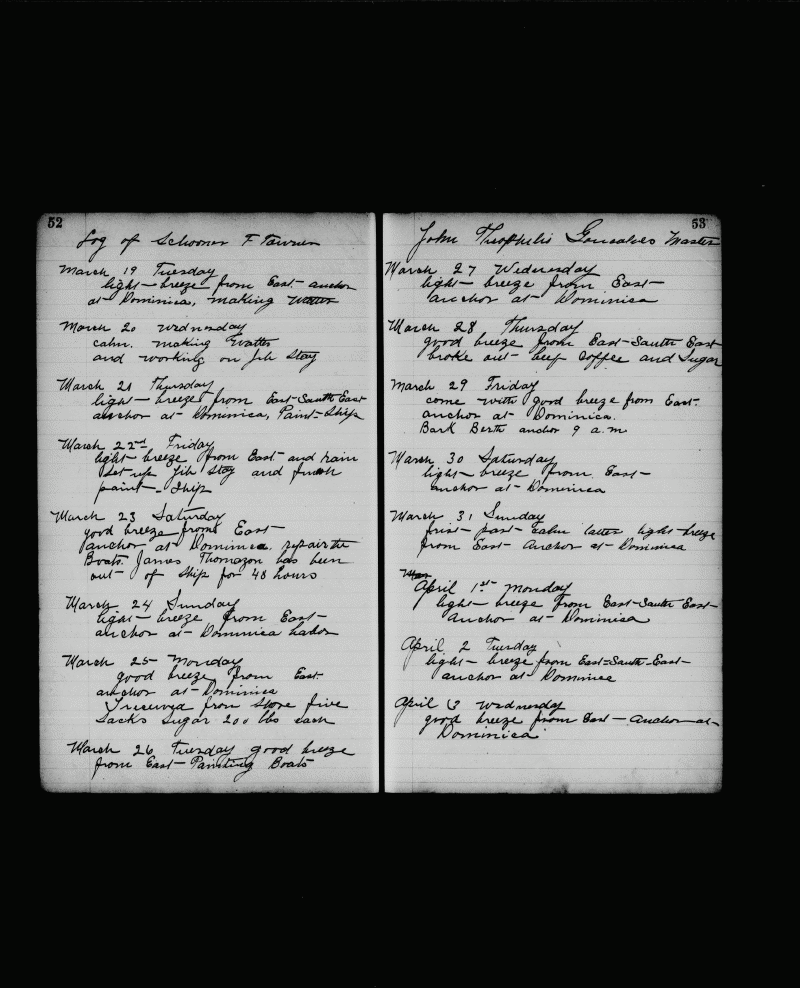 52
Log of Schooner F Tawner
March 19 Tuesday
light breeze from East anchor
at Dominica, making Watter
March 20 Wednesday
calm. making Watter
and working on Jib Stay
March 21 Thursday
light breeze from East South East
anchor at Dominica, Paint Ship
March 22nd Friday
light breeze from East and rain
Set up Jib Stay and finish
paint Ship
March 23 Saturday
good breeze from East
anchor at Dominica. repair the
Boats. James Thomazon has been
out of Ship for 48 hours
March 24 Sunday
light breeze from East
anchor at Dominica
March 25 Monday
good breeze from East
anchor at Dominica
I received from Store five
Sacks Sugar 200 lbs each
March 26 Tuesday good breeze
from East Painting Boats
53
John Theophilis Goncalves Master
March 27 Wednesday
light breeze from East
anchor at Dominica
March 28 Thursday
good breeze from East South East
broke out beef Coffee and Sugar
March 29 Friday
come with good breeze from East.
anchor at Dominica.
Bark Berth anchor 9 a.m
March 30 Saturday
light breeze from East
anchor at Dominica
March 31 Sunday
frist part Calm latter light breeze
from East Anchor at Dominica
Mar
April 1st Monday
light breeze from East South East
Anchor at Dominica
April 2 Tuesday
light breeze from East=South East
anchor at Dominica
April 3 Wednesday
good breeze from East Anchor at
Dominica